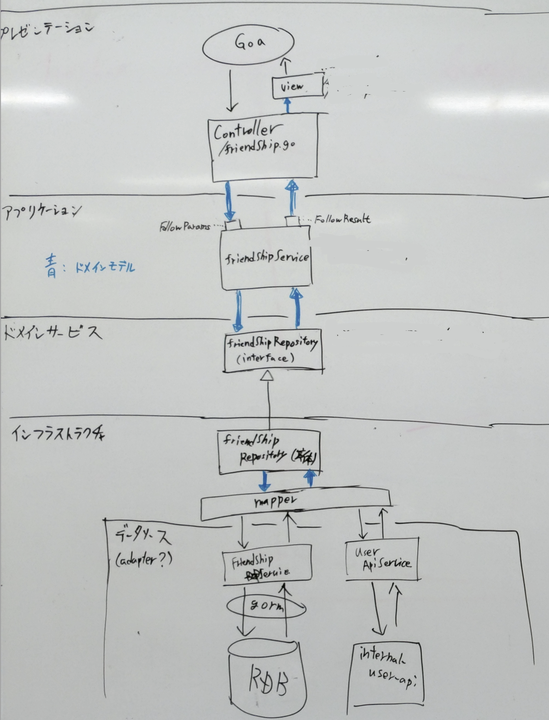 プレゼンテーション
Goa
view
Controller
/friendship.go
アプリケーション
FollowParams
FollowResult
friendshipService
青：ドメインモデル
ドメインサービス
friendshipRepository
(interface)
インフラストラクチャ
friendship
Repository
mapper
データソース
(adapter?)
Friendship
Service
User
ApiService
gorm
RDB
internal-
user-api